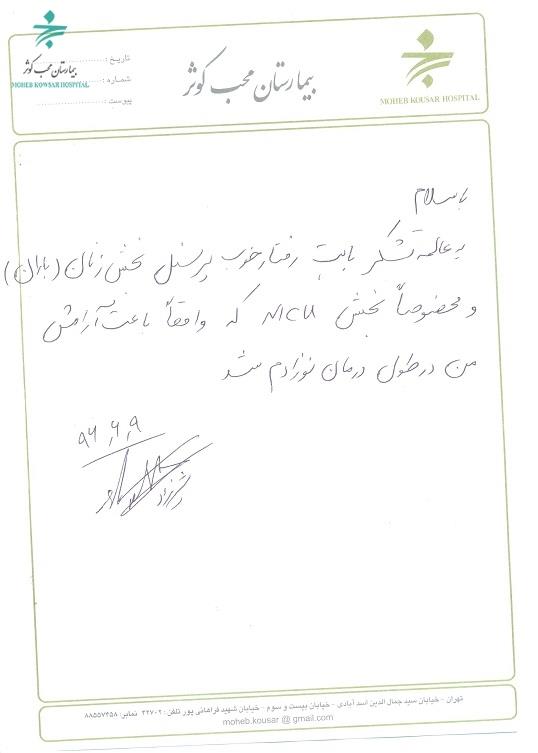 بیمارستان محب کوثر
MOHEB KOWSAR HOSPITAL
تاریخ :
شماره :
پیوست :
بیمارستان محب کوثر
MOHEB KOUSAR HOSPITAL
با سلام
یه عالمه تشکر بابت رفتار خوب پرسنل بخش زنان (باران)
و مخصوصاً بخش NICU که واقعاً باعث آرامش
من در طول درمان نوزادم شد
۹۶,۶,۹
تهران - خیابان سید جمال الدین اسد آبادی - خیابان بیست و سوم - خیابان شهید فراهانی پور تلفن : ۲۲۷۰۲ نمابر: ۸۸۵۵۷۲۵۸
moheb.kousar @ gmail.com